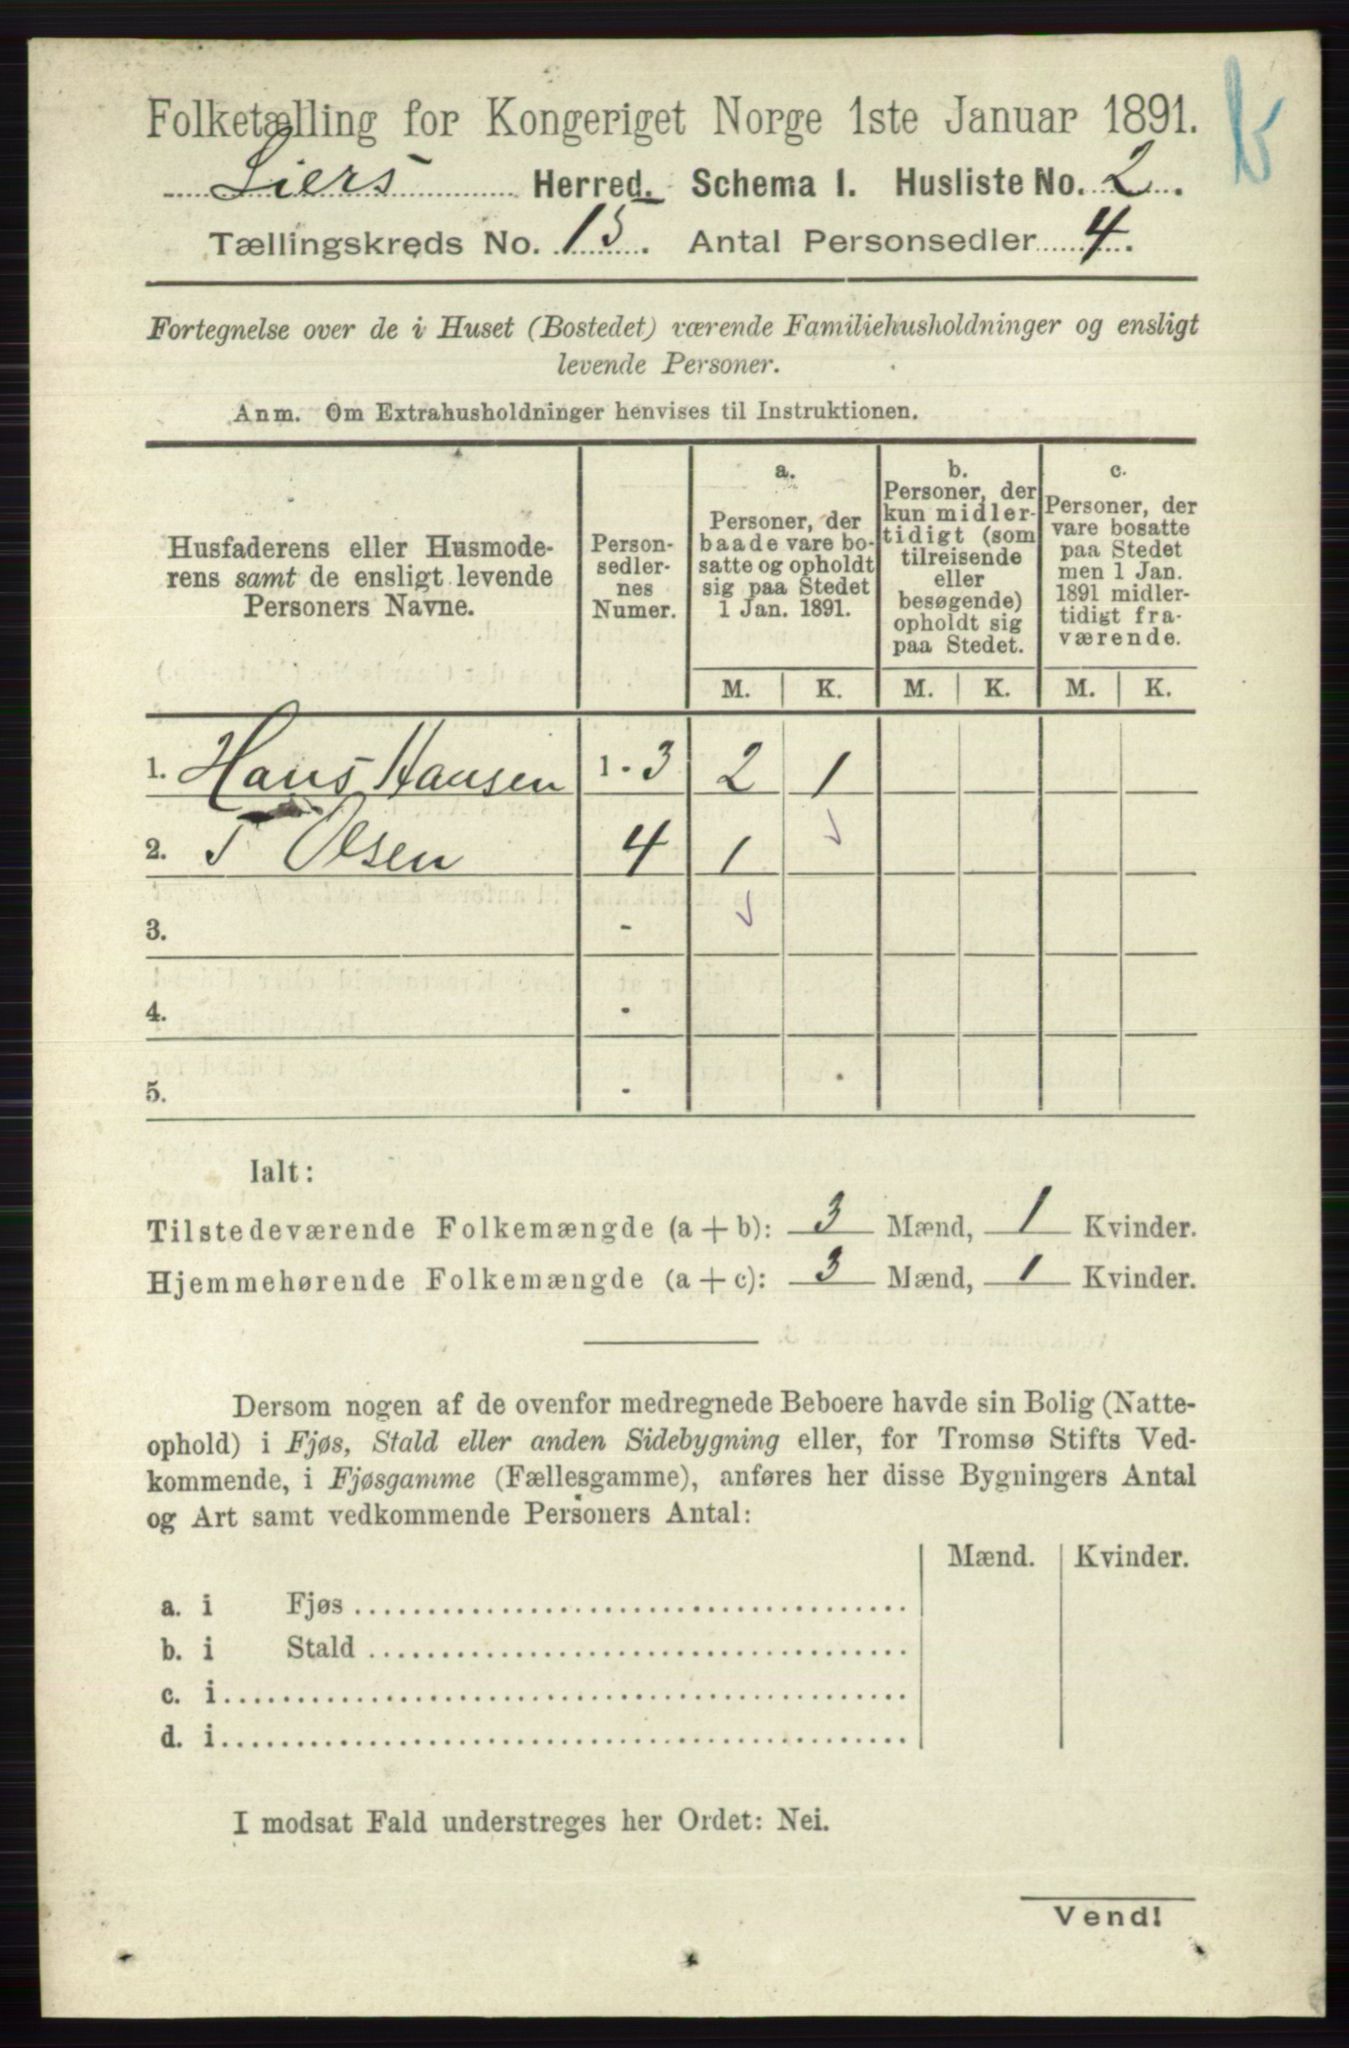 Folketælling for Kongeriget Norge 1ste Januar 1891.
Liers Herred. Schema I. Husliste No. 2.
Tællingskreds No. 15. Antal Personsedler 4.
Fortegnelse over de i Huset (Bostedet) værende Familiehusholdninger og ensligt
levende Personer.
Anm. Om Extrahusholdninger henvises til Instruktionen.
Husfaderens eller Husmode-
rens samt de ensligt levende
Personers Navne.
Person-
sedler-
nes
Numer.
a.
Personer, der
baade vare bo-
satte og opholdt
sig paa Stedet
1 Jan. 1891.
b.
Personer, der
kun midler-
tidigt (som
tilreisende
eller
besøgende)
opholdt sig
paa Stedet.
c.
Personer, der
vare bosatte
paa Stedet
men 1 Jan.
1891 midler-
tidigt fra-
værende.
M. K. M. K. M. K.
1. Hans Hansen 1 - 3 2 1
2. T Olsen 4 1
3. -
4. -
5. -
Ialt:
Tilstedeværende Folkemængde (a + b): 3 Mænd, 1 Kvinder.
Hjemmehørende Folkemængde (a + c): 3 Mænd, 1 Kvinder.
Dersom nogen af de ovenfor medregnede Beboere havde sin Bolig (Natte-
ophold) i Fjøs, Stald eller anden Sidebygning eller, for Tromsø Stifts Ved-
kommende, i Fjøsgamme (Fællesgamme), anføres her disse Bygningers Antal
og Art samt vedkommende Personers Antal:
Mænd. Kvinder.
a. i Fjøs
b. i Stald
c. i
d. i
I modsat Fald understreges her Ordet: Nei.
Vend!